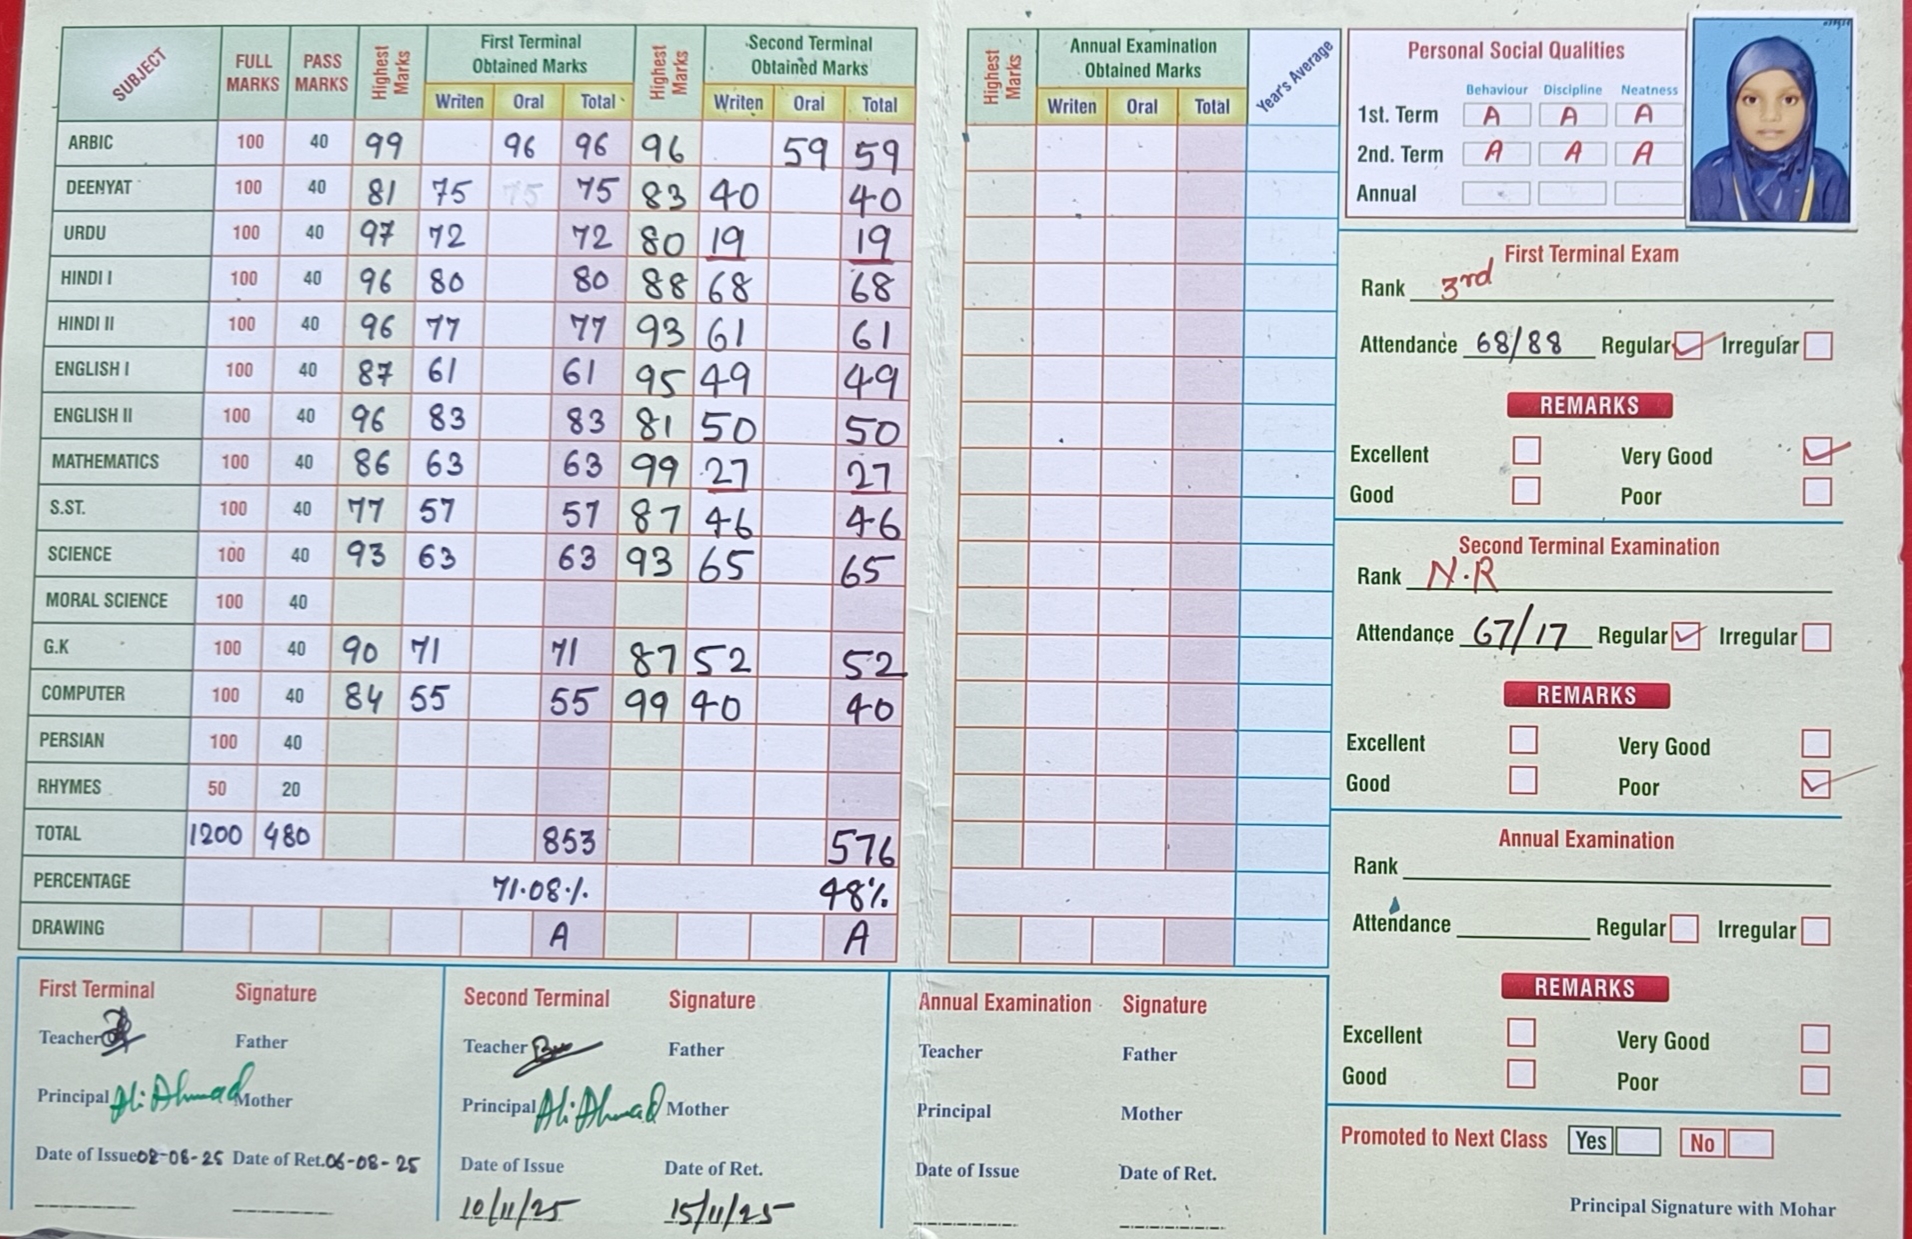 SUBJECT FULL MARKS PASS MARKS Highest Marks First Terminal Obtained Marks Highest Marks Second Terminal Obtained Marks
Writen Oral Total Writen Oral Total
ARBIC 100 40 99 96 96 96 59 59
DEENYAT 100 40 81 75 75 75 83 40 40
URDU 100 40 97 72 72 80 19 19
HINDI I 100 40 96 80 80 88 68 68
HINDI II 100 40 96 77 77 93 61 61
ENGLISH I 100 40 87 61 61 95 49 49
ENGLISH II 100 40 96 83 83 81 50 50
MATHEMATICS 100 40 86 63 63 99 27 27
S.ST. 100 40 77 57 57 87 46 46
SCIENCE 100 40 93 63 63 93 65 65
MORAL SCIENCE 100 40
G.K 100 40 90 71 71 87 52 52
COMPUTER 100 40 84 55 55 99 40 40
PERSIAN 100 40
RHYMES 50 20
TOTAL 1200 480 853 576
PERCENTAGE 71.08% 48%
DRAWING A A
First Terminal Signature
Teacher Father
Principal Ali Ahmad Mother
Date of Issue 02-08-25 Date of Ret. 06-08-25
Second Terminal Signature
Teacher Father
Principal Ali Ahmad Mother
Date of Issue Date of Ret.
10/11/25 15/11/25
Highest Marks Annual Examination Obtained Marks Year's Average
Writen Oral Total
Annual Examination Signature
Teacher Father
Principal Mother
Date of Issue Date of Ret.
Personal Social Qualities
Behaviour Discipline Neatness
1st. Term A A A
2nd. Term A A A
Annual
First Terminal Exam
Rank 3rd
Attendance 68/88 Regular Irregular
REMARKS
Excellent Very Good
Good Poor
Second Terminal Examination
Rank N.R
Attendance 67/17 Regular Irregular
REMARKS
Excellent Very Good
Good Poor
Annual Examination
Rank
Attendance Regular Irregular
REMARKS
Excellent Very Good
Good Poor
Promoted to Next Class Yes No
Principal Signature with Mohar